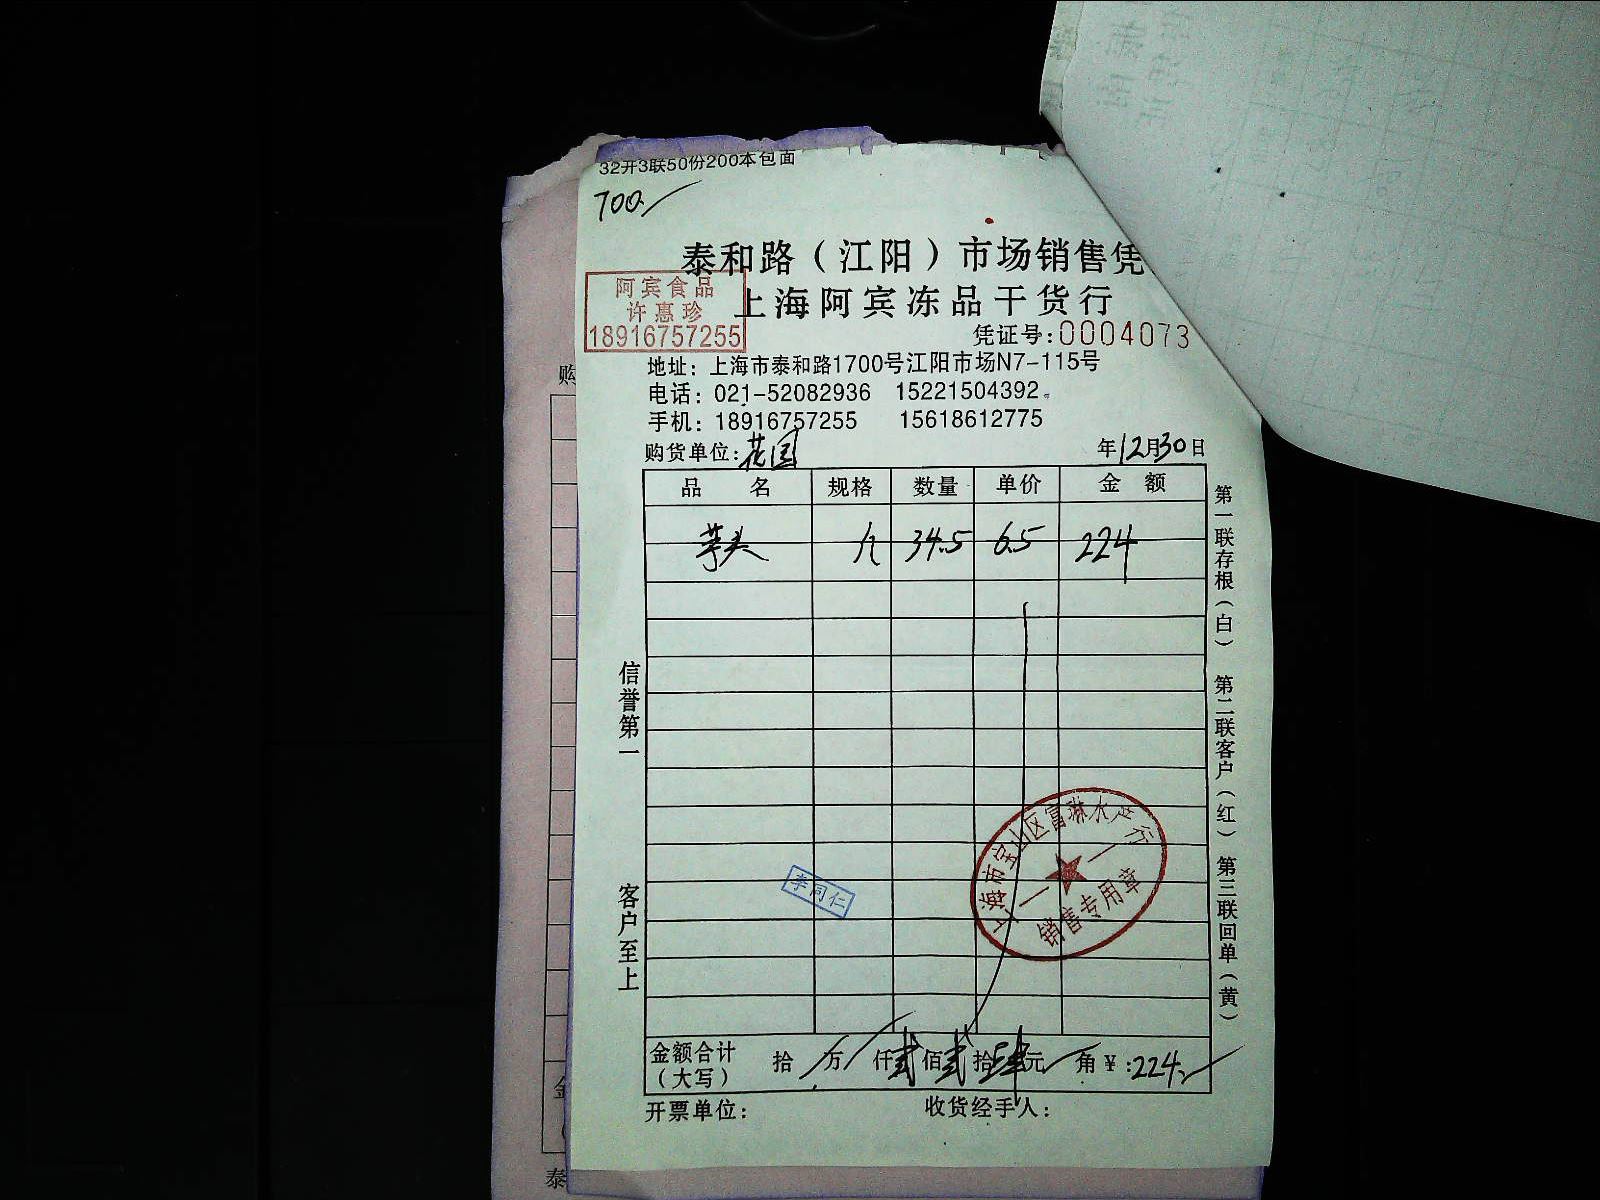 32开3联50份200本包面
700
泰和路（江阳）市场销售凭
阿宾食品
许惠珍
18916757255
上海阿宾冻品干货行
凭证号:0004073
地址：上海市泰和路1700号江阳市场N7-115号
电话：021-52082936 15221504392
手机：18916757255 15618612775
购货单位:花园 年12月30日
品 名 规格 数量 单价 金 额
芋头 34.5 6.5 224
信誉第一
客户至上
第一联存根（白） 第二联客户（红） 第三联回单（黄）
上海市宝山区富琳水产行
销售专用章
李同仁
金额合计（大写） 拾 万 仟 贰 佰 贰 拾 肆 元 角 ¥:224
开票单位： 收货经手人：
购
金
泰